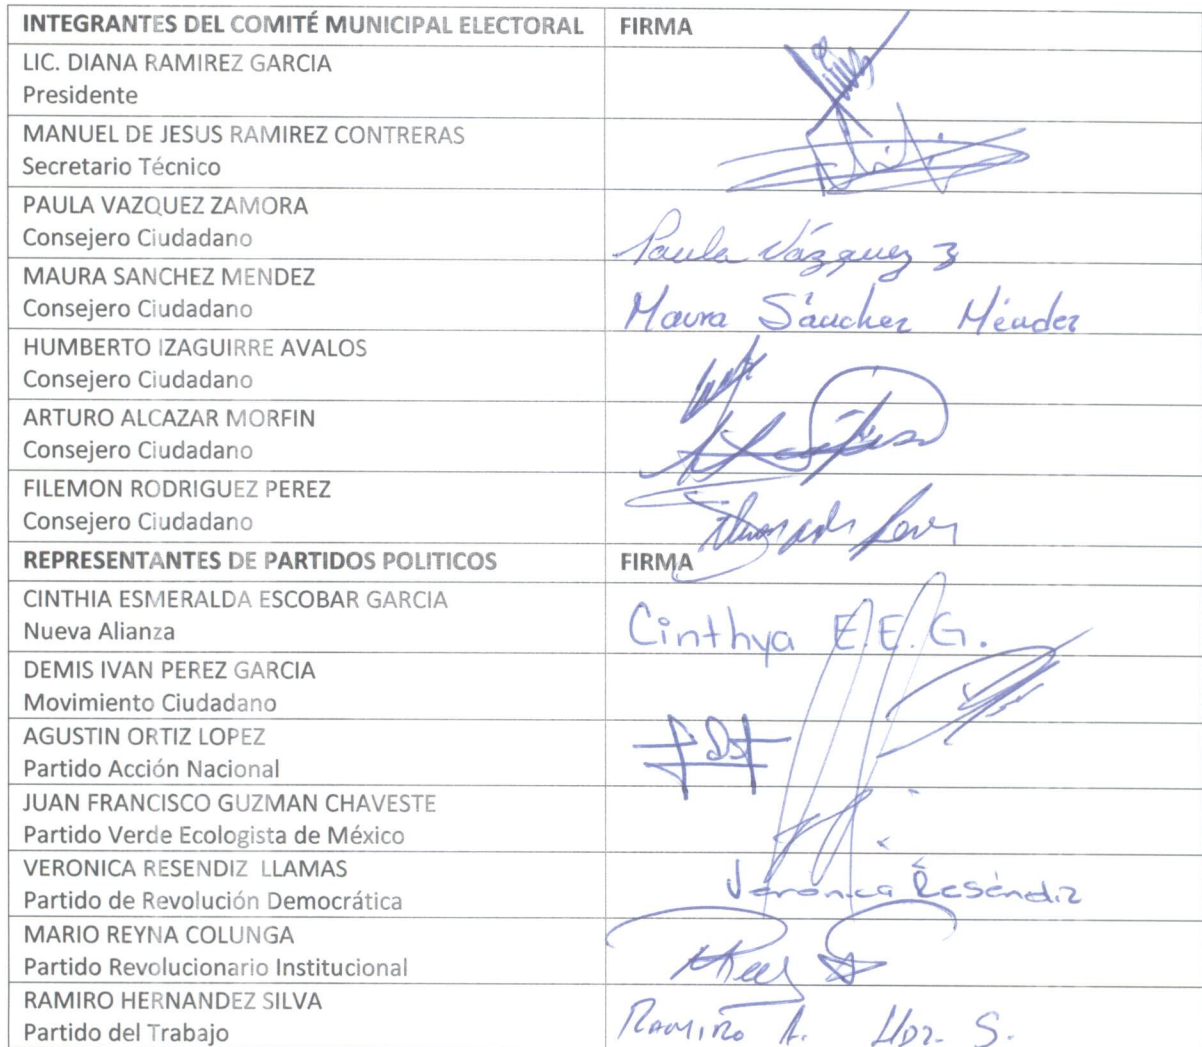 INTEGRANTES DEL COMITÉ MUNICIPAL ELECTORAL FIRMA
LIC. DIANA RAMIREZ GARCIA
Presidente
MANUEL DE JESUS RAMIREZ CONTRERAS
Secretario Técnico
PAULA VAZQUEZ ZAMORA
Consejero Ciudadano
Paula Vázquez Z
MAURA SANCHEZ MENDEZ
Consejero Ciudadano
Maura Sánchez Méndez
HUMBERTO IZAGUIRRE AVALOS
Consejero Ciudadano
ARTURO ALCAZAR MORFIN
Consejero Ciudadano
FILEMON RODRIGUEZ PEREZ
Consejero Ciudadano
REPRESENTANTES DE PARTIDOS POLITICOS FIRMA
CINTHIA ESMERALDA ESCOBAR GARCIA
Nueva Alianza
Cinthya E.E.G.
DEMIS IVAN PEREZ GARCIA
Movimiento Ciudadano
AGUSTIN ORTIZ LOPEZ
Partido Acción Nacional
JUAN FRANCISCO GUZMAN CHAVESTE
Partido Verde Ecologista de México
VERONICA RESENDIZ LLAMAS
Partido de Revolución Democrática
Verónica Reséndiz
MARIO REYNA COLUNGA
Partido Revolucionario Institucional
RAMIRO HERNANDEZ SILVA
Partido del Trabajo
RAMIRO A. HDZ. S.